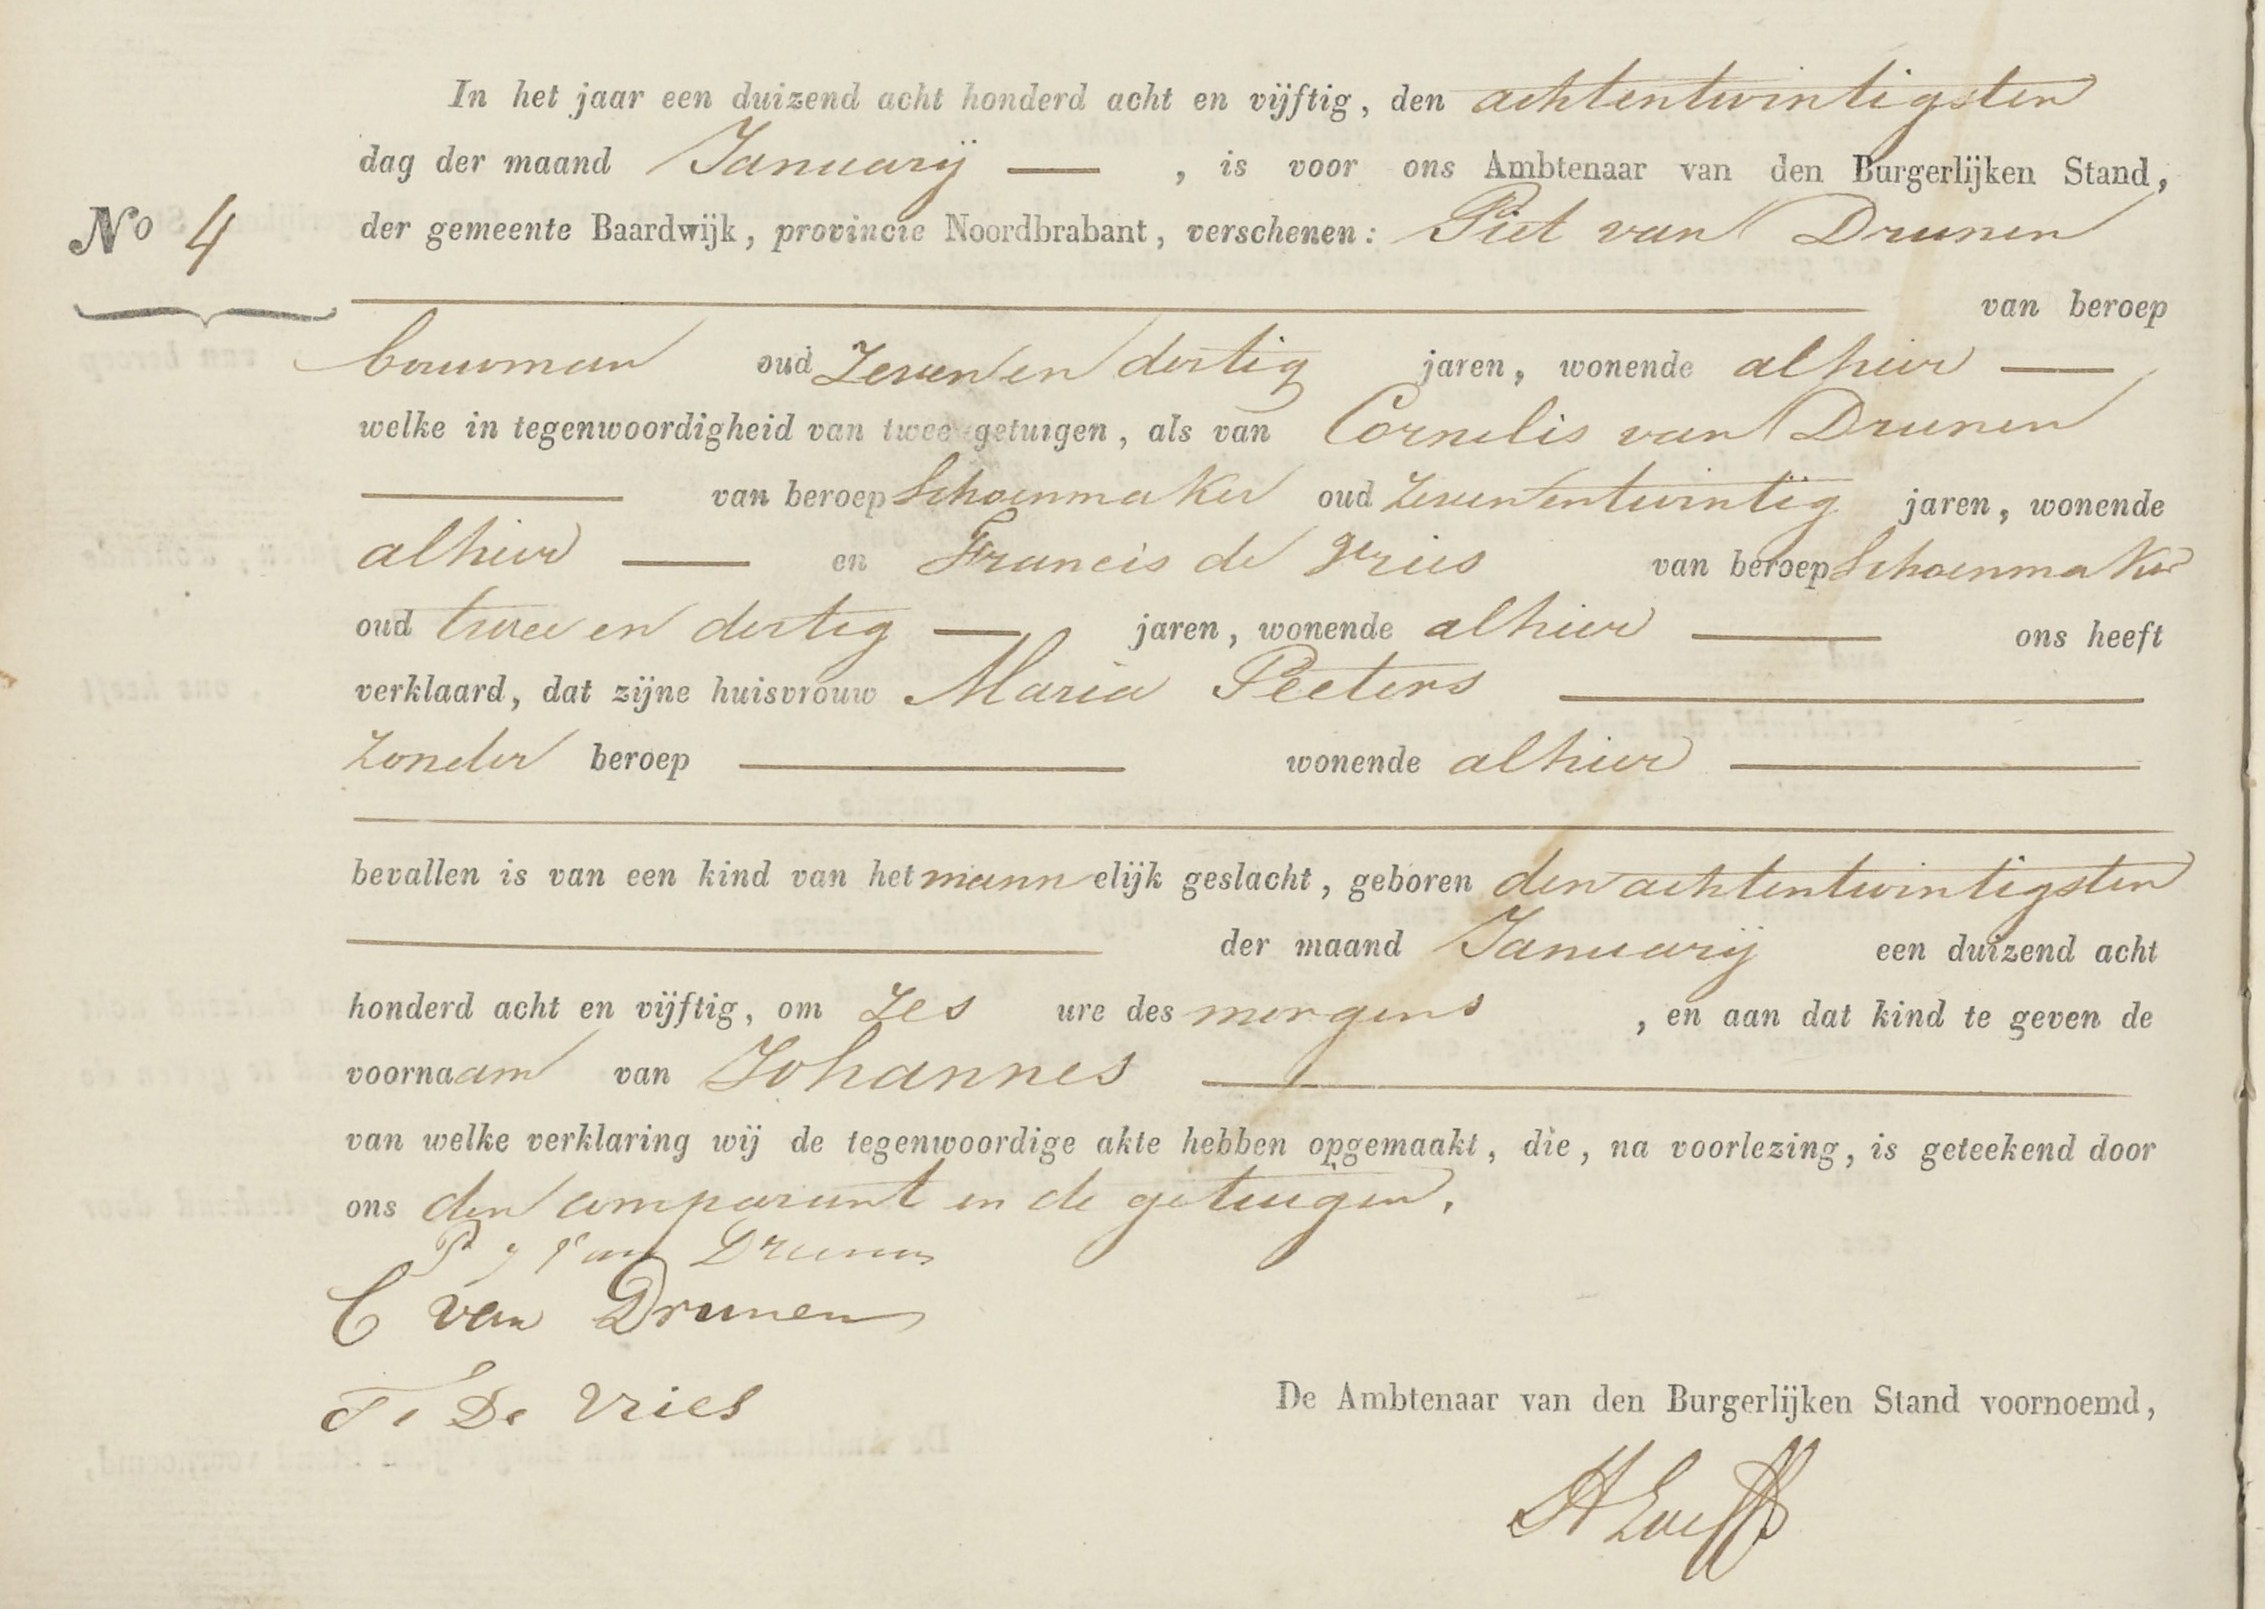 In het jaar een duizend acht honderd acht en vijftig, den achtentwintigsten
dag der maand Januarij —, is voor ons Ambtenaar van den Burgerlijken Stand,
No 4
der gemeente Baardwijk, provincie Noordbrabant, verschenen: Piet van Drunen
van beroep
bouwman oud Zeven en dertig jaren, wonende alhier —
welke in tegenwoordigheid van twee getuigen, als van Cornelis van Drunen
— van beroep Schoenmaker oud zevenentwintig jaren, wonende
alhier — en Francis de Vries van beroep Schoenmaker
oud twee en dertig — jaren, wonende alhier — ons heeft
verklaard, dat zijne huisvrouw Maria Peeters —
zonder beroep — wonende alhier —
bevallen is van een kind van het mannelijk geslacht, geboren den achtentwintigsten
— der maand Januarij een duizend acht
honderd acht en vijftig, om zes ure des morgens, en aan dat kind te geven de
voornaam van Johannes —
van welke verklaring wij de tegenwoordige akte hebben opgemaakt, die, na voorlezing, is geteekend door
ons den comparant en de getuigen.
P van Drunen
C van Drunen
F De Vries
De Ambtenaar van den Burgerlijken Stand voornoemd,